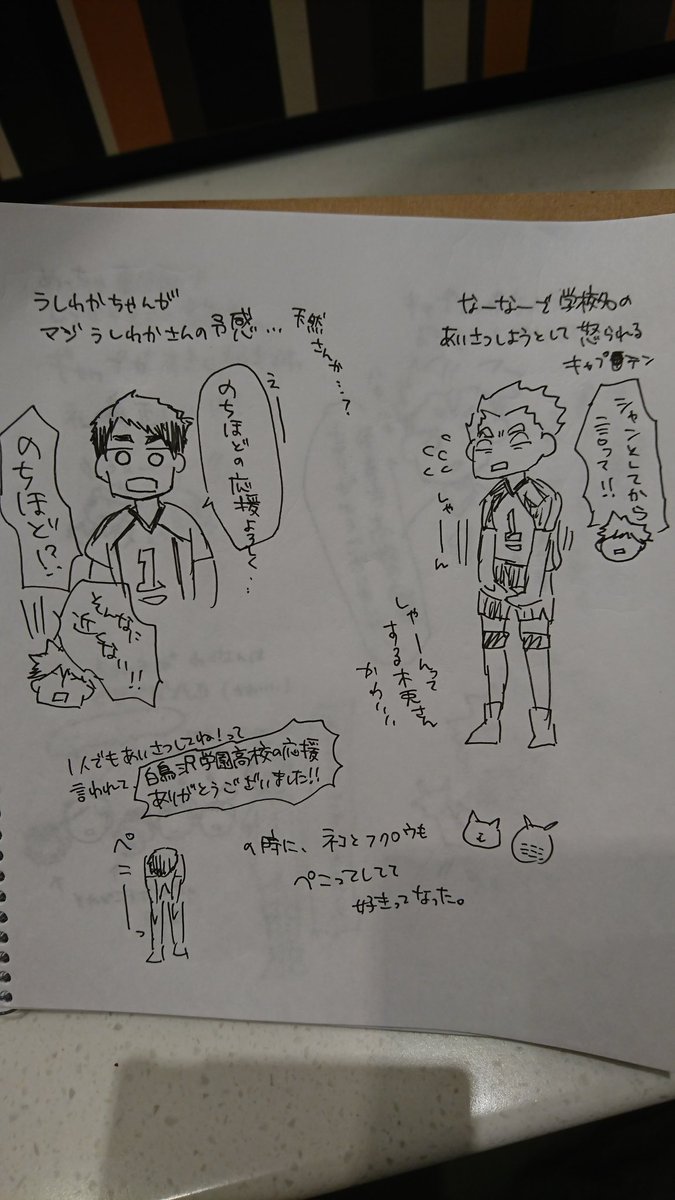 なーなーで学校名の
あいさつしようとして怒られる
キャプテン
シャンとしてから
言って!!
しゃーーん
しゃーんって
する木兎さん
かわいい
うしわかちゃんが
マジうしわかさんの予感…
天然
さんか…?
えー
のちほどの応援よろしく…
のちほど!?
そんなに
近くない!!
1人でもあいさつしてね!って
言われて
白鳥沢学園高校の応援
ありがとうございました!!
ペこーーっ
の時に、ネコとフクロウも
ペこってしてて
好きってなった。
1
1